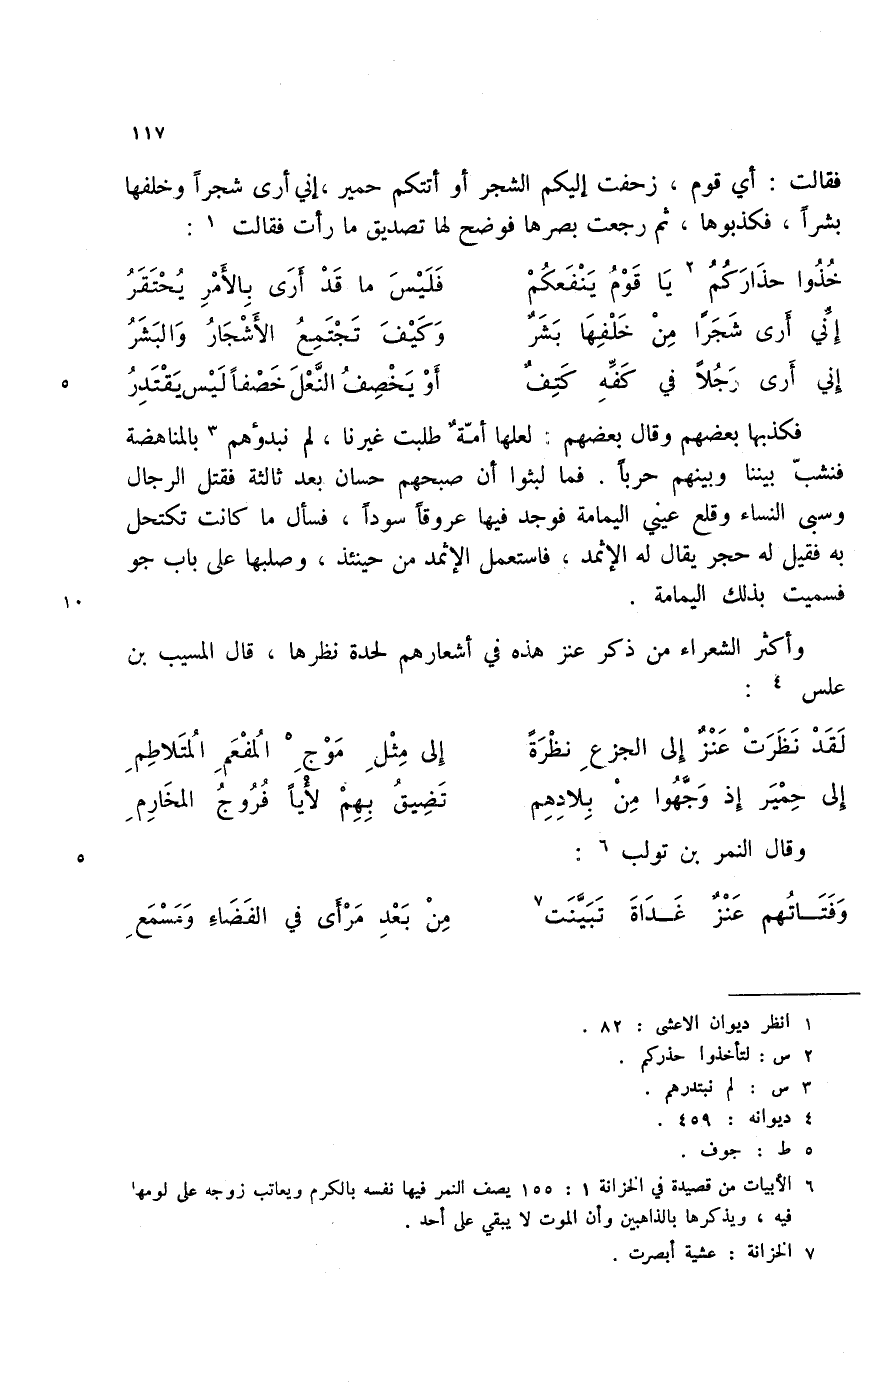 ١١٧
فقالت : أي قوم ، زحفت إليكم الشجر أو أتتكم حمير ،إني أرى شجراً وخلفها
بشراً ، فكذبوها ، ثم رجعت بصرها فوضح لها تصديق ما رأت فقالت ١ :
خُذُوا حذارَكُمُ ٢ يَا قَوْمُ يَنْفَعكُمْ فَلَيْسَ ما قَدْ أَرَى بِالأَمْرِ يُحْتَقَرُ
إنِّي أرى شَجَرًا مِنْ خَلْفِهَا بَشَرٌ وَكَيْفَ تَجْتَمِعُ الأَشْجَارُ وَالبَشَرُ
إني أرى رَجُلاً في كَفّهِ كَتِفٌ أوْ يَخْصِفُ النَّعْلَ خَصْفاً لَيْس يَقْتَدِرُ
٥
فكذبها بعضهم وقال بعضهم : لعلها أمّةٌ طلبت غيرنا ، لم نبدؤهم ٣ بالمناهضة
فنشبّ بيننا وبينهم حرباً . فما لبثوا أن صبحهم حسان بعد ثالثة فقتل الرجال
وسبى النساء وقلع عيني اليمامة فوجد فيها عروقاً سوداً ، فسأل ما كانت تكتحل
به فقيل له حجر يقال له الإثمد ، فاستعمل الإثمد من حينئذ ، وصلبها على باب جو
فسميت بذلك اليمامة .
١٠
وأكثر الشعراء من ذكر عنز هذه في أشعارهم لحدة نظرها ، قال المسيب بن
علس ٤ :
لَقَدْ نَظَرَتْ عَنْزٌ إلى الجزعِ نظْرَةً إلى مِثْلِ مَوْجِ ٥ المُفْعَمِ المُتَلاطِمِ
إلى حِمْيَر إذ وَجَّهُوا مِنْ بِلادِهِم تَضِيقُ بِهِمْ لأياً فُرُوجُ المخارِمِ
وقال النمر بن تولب ٦ :
٥
وَفَتَـاتُهم عَنْزٌ غَـدَاةَ تَبَيَّنَت ٧ مِنْ بَعْدِ مَرْأَى في الفَضَاءِ وَمَسْمَعِ
١ انظر ديوان الاعشى : ٨٢ .
٢ س : لتأخذوا حذركم .
٣ س : لم نبتدرهم .
٤ ديوانه : ٤٥٩ .
٥ ط : جوف .
٦ الأبيات من قصيدة في الخزانة ١ : ١٥٥ يصف النمر فيها نفسه بالكرم ويعاتب زوجه على لومها
فيه ، ويذكرها بالذاهبين وأن الموت لا يبقي على أحد .
٧ الخزانة : عشية أبصرت .